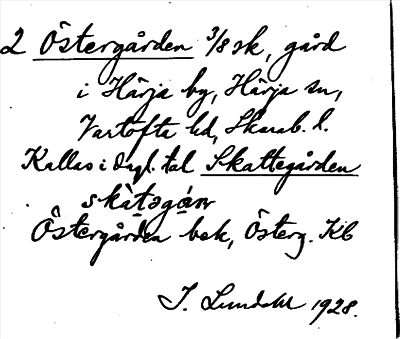 2 Östergården 3/8 sk, gård
i Härja by, Härja sn,
Vartofta hd, Skarab. l.
Kallas i dagl. tal Skattegården
skàtəgán
Östergården bek, Österg. Kb
I. Lundahl 1928.